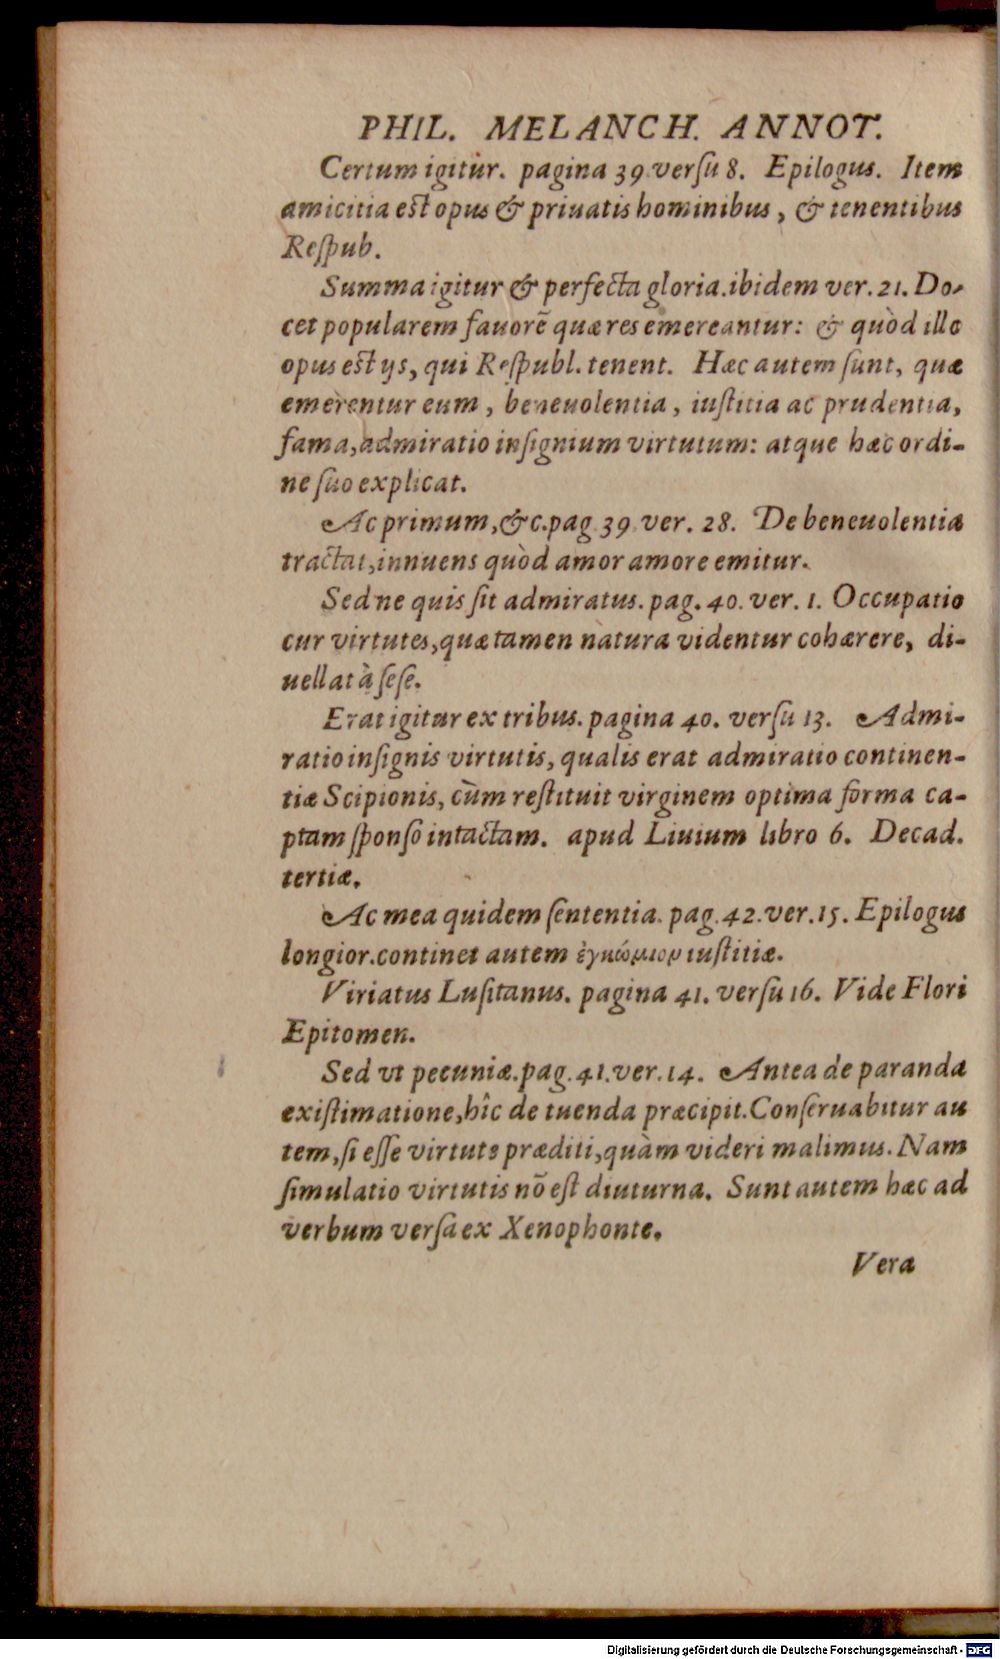 PHIL. MELANCH. ANNOT.
Certum igitur. pagina 39. verſu 8. Epilogus. Item
amicitia eſt opus & priuatis hominibus, & tenentibus
Reſpub.
Summa igitur & perfecta gloria. ibidem ver. 21. Do-
cet popularem fauorē quæ res emereantur: & quòd illo
opus eſt ijs, qui Reſpubl. tenent. Hæc autem ſunt, quæ
emerentur eum, beneuolentia, iuſtitia ac prudentia,
fama, admiratio inſignium virtutum: atque hæc ordi-
ne ſuo explicat.
Ac primum, &c. pag. 39. ver. 28. De beneuolentia
tractat, innuens quòd amor amore emitur.
Sed ne quis ſit admiratus. pag. 40. ver. 1. Occupatio
cur virtutes, quæ tamen natura videntur cohærere, di-
uellat à ſeſe.
Erat igitur ex tribus. pagina 40. verſu 13. Admi-
ratio inſignis virtutis, qualis erat admiratio continen-
tiæ Scipionis, cùm reſtituit virginem optima forma ca-
ptam ſponſo intactam. apud Liuium libro 6. Decad.
tertiæ.
Ac mea quidem ſententia. pag. 42. ver. 15. Epilogus
longior. continet autem ἐγκώμιον iuſtitiæ.
Viriatus Luſitanus. pagina 41. verſu 16. Vide Flori
Epitomen.
Sed vt pecuniæ. pag. 41. ver. 14. Antea de paranda
exiſtimatione, hîc de tuenda præcipit. Conſeruabitur au
tem, ſi eſſe virtute præditi, quàm videri malimus. Nam
ſimulatio virtutis nō eſt diuturna. Sunt autem hæc ad
verbum verſa ex Xenophonte.
Vera
Digitalisierung gefördert durch die Deutsche Forschungsgemeinschaft - DFG